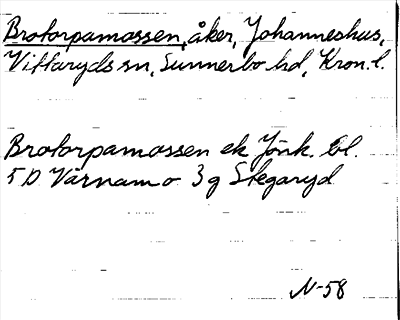 Brotorpamossen, åker, Johanneshus,
Vittaryds sn, Sunnerbo hd, Kron. l.
Brotorpamossen ek Jönk. bl.
5 D Värnamo 3 g Stegaryd
N-58